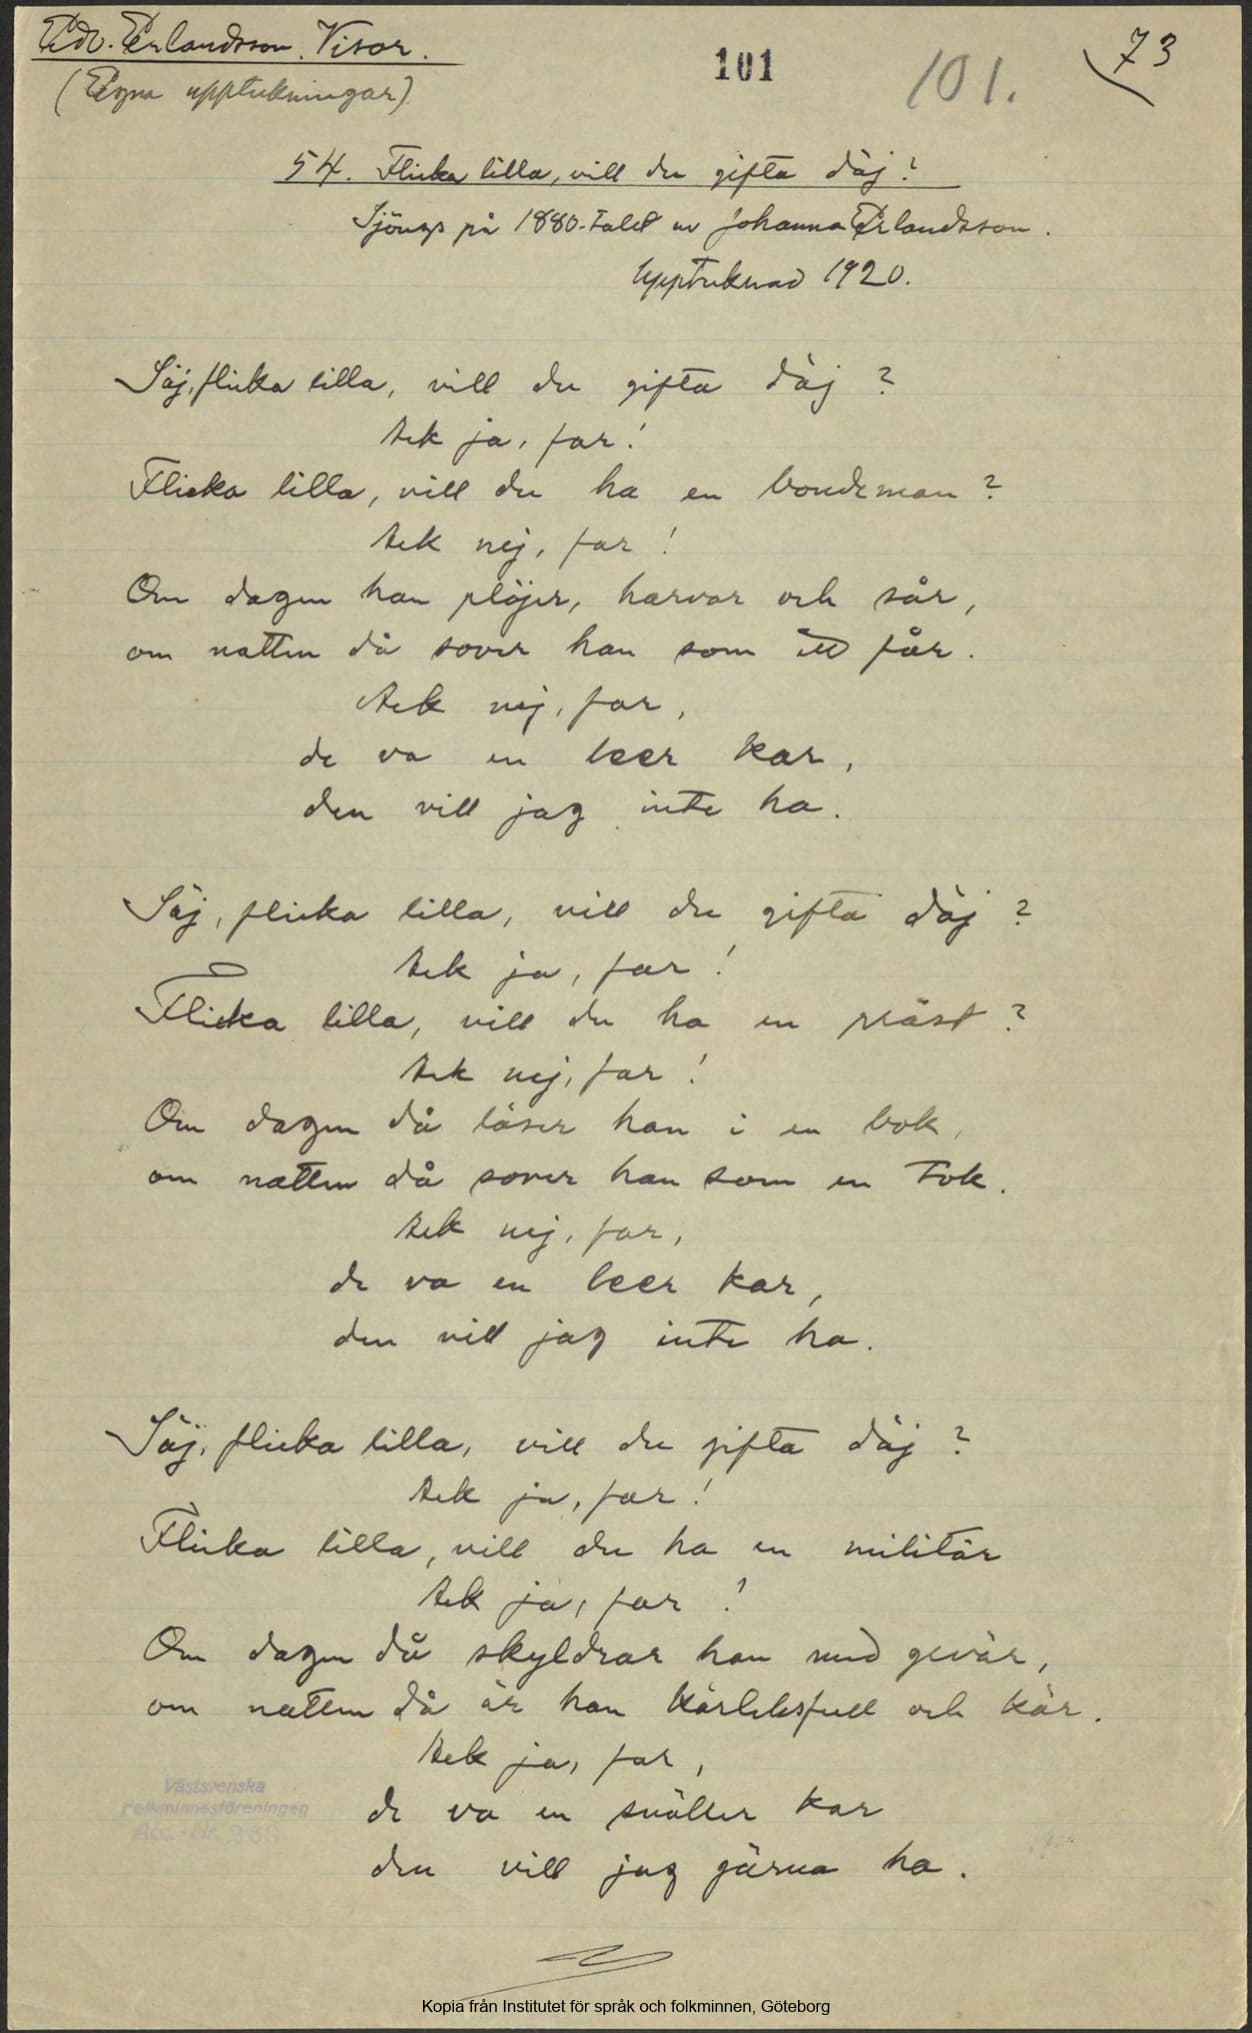 Edv. Erlandsson. Visor.
(Egna uppteckningar).
101
101.
73
54. Flicka lilla, vill du gifta däj?
Sjöngs på 1880-talet av Johanna Erlandsson.
Upptecknad 1920.
Säj, flicka lilla, vill du gifta däj?
Ack ja, far!
Flicka lilla, vill du ha en bondeman?
Ack nej, far!
Om dagen han plöjer, harvar och sår,
om natten då sover han som ett får.
Ack nej, far,
de va en leer kar,
den vill jag inte ha.
Säj, flicka lilla, vill du gifta däj?
Ack ja, far!
Flicka lilla, vill du ha en präst?
Ack nej, far!
Om dagen då läser han i en bok,
om natten då sover han som en tok.
Ack nej, far,
de va en leer kar,
den vill jag inte ha.
Säj, flicka lilla, vill du gifta däj?
Ack ja, far!
Flicka lilla, vill du ha en militär
Ack ja, far!
Om dagen då skyldrar han med gevär,
om natten då är han kärleksfull och kär.
Ack ja, far,
de va en snäller kar
den vill jag gärna ha.
Västsvenska
Folkminnesföreningen
Acc.-Nr.
Kopia från Institutet för språk och folkminnen, Göteborg